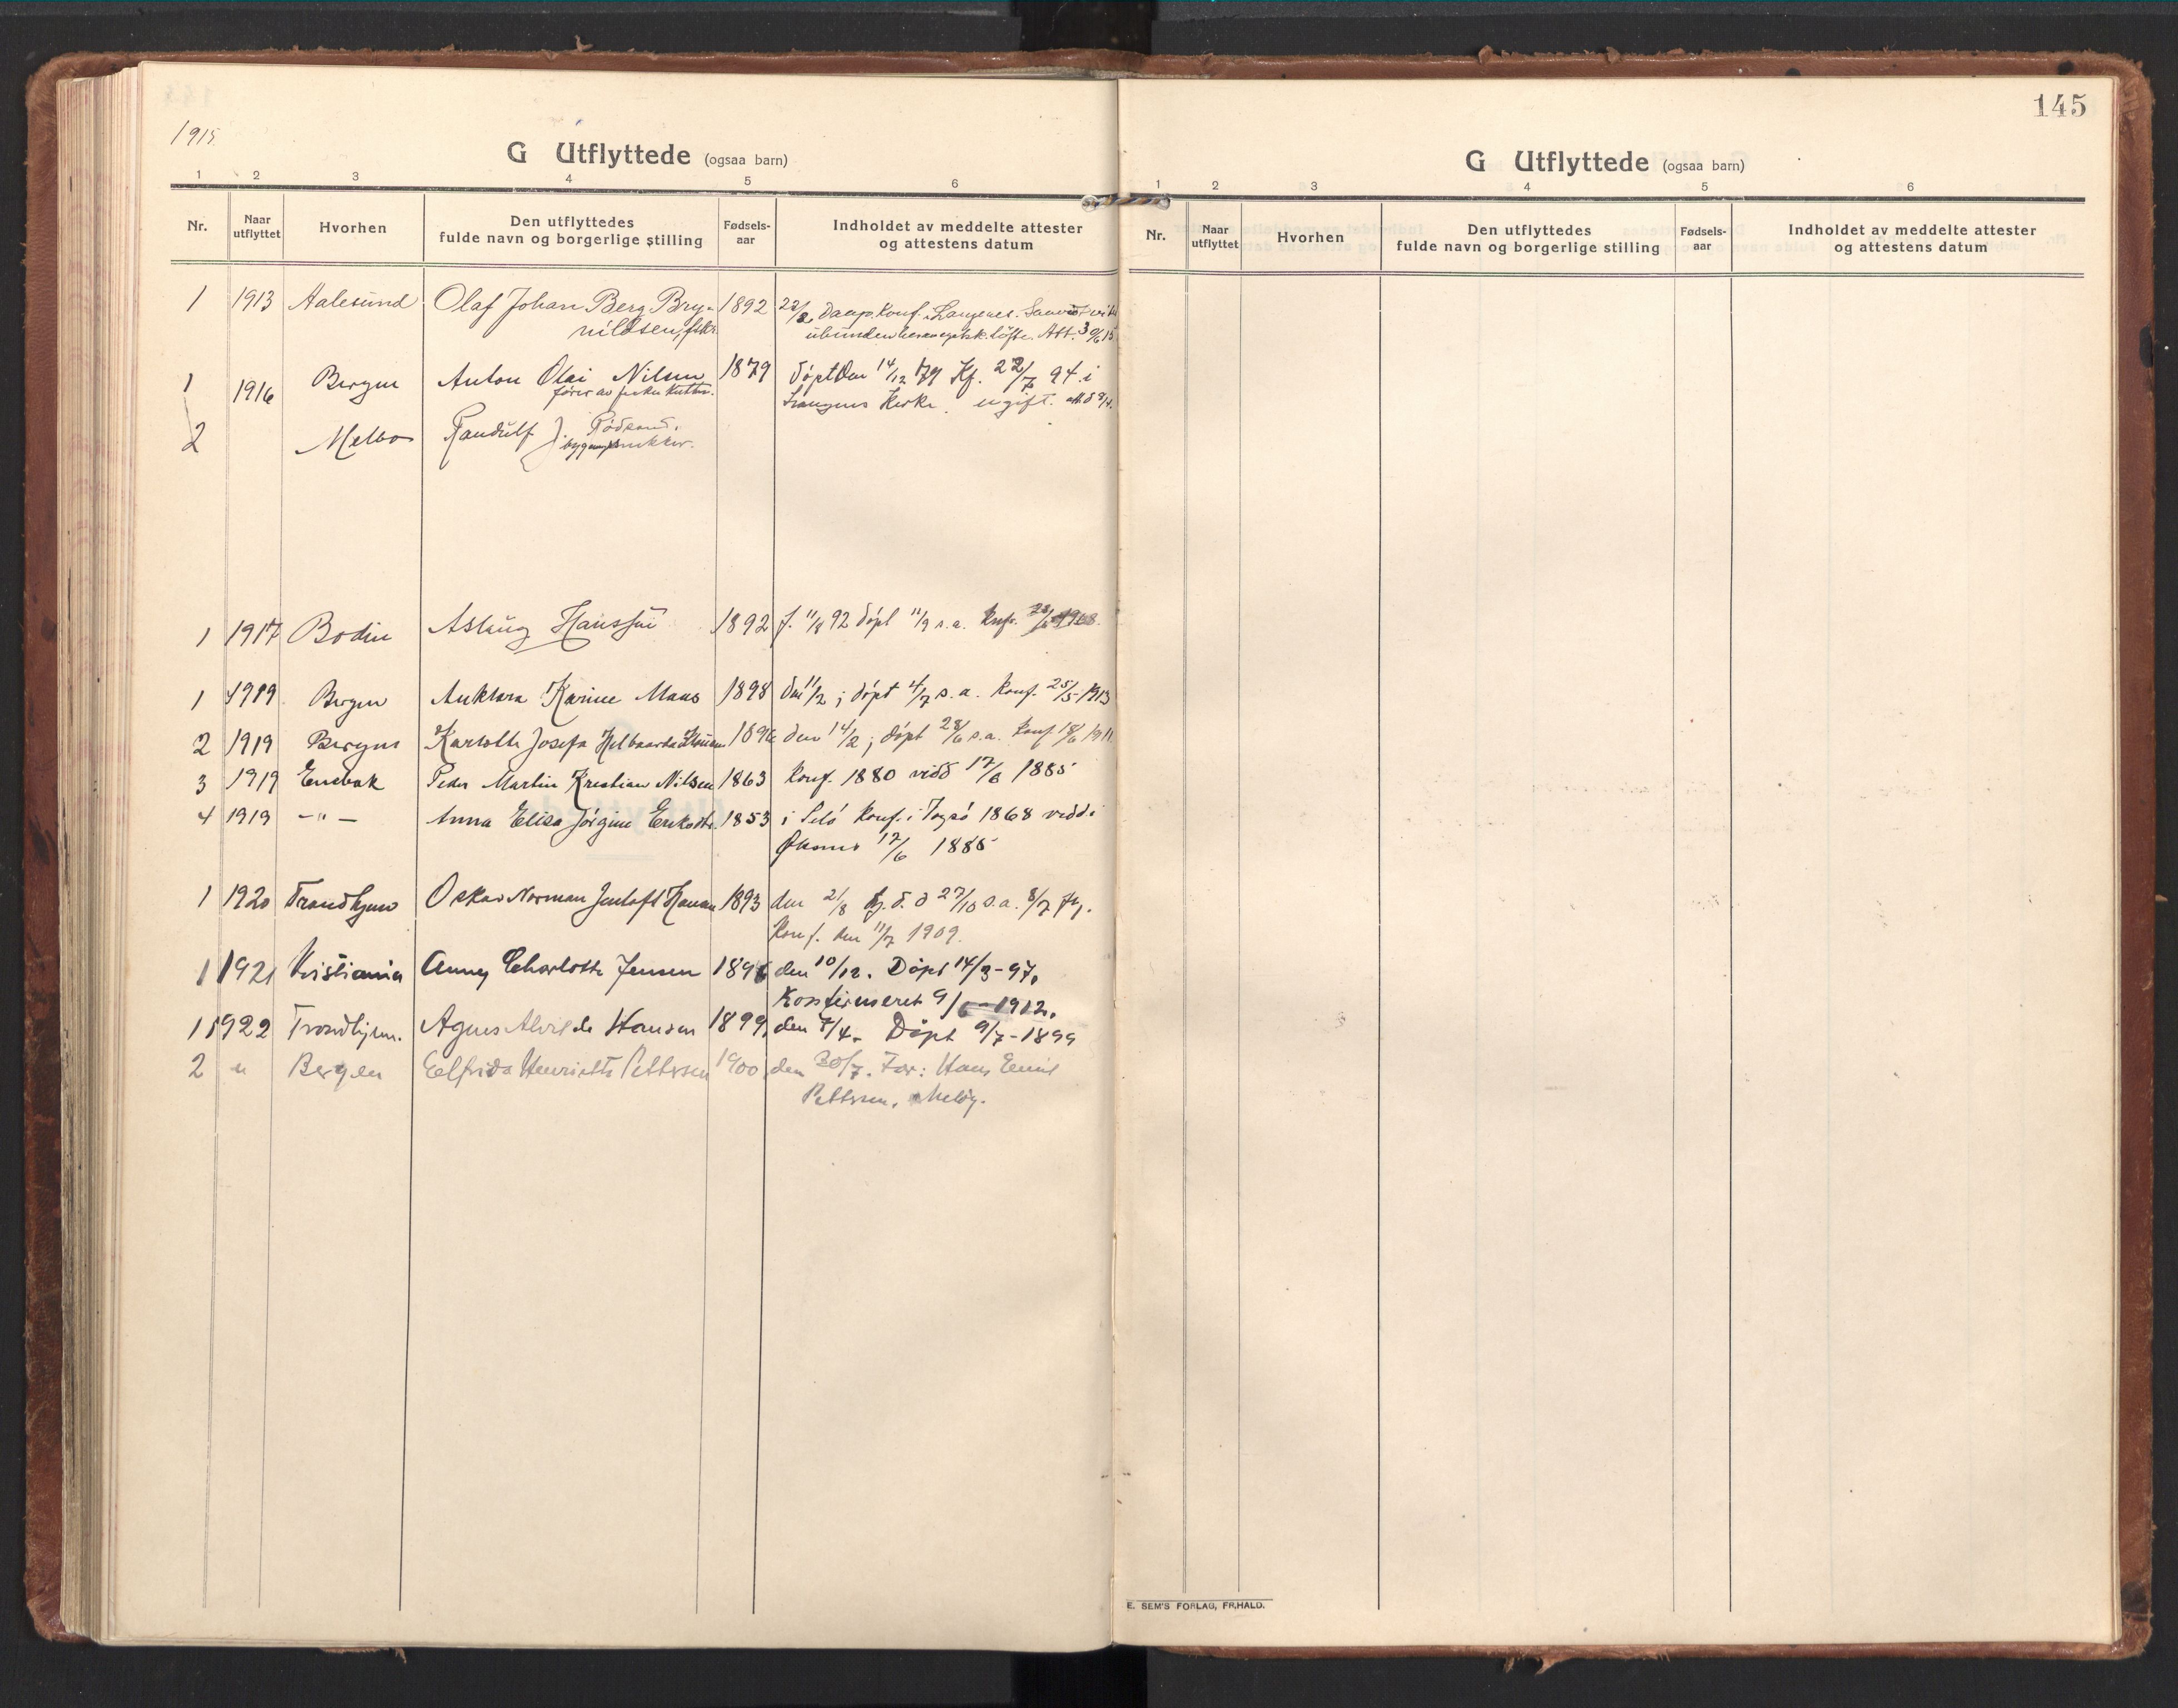 1915
G Utflyttede (ogsaa barn)
1 2 3 4 5 6
Nr. Naar utflyttet Hvorhen Den utflyttedes fulde navn og borgerlige stilling Fødsels-aar Indholdet av meddelte attester og attestens datum
1 1913 Aalesund Olaf Johan Berg Bry- 1892 22/2 Konf. Langenes.
nildsen, fisk. Att. 30/6 15
1 1916 Bergen Anton Olai Nilsen 1879 døpt den 14/12 79 Kf. 22/7 94 i
fører av Kirke. ugift.
2 Melbo Randulf J.
1 1917 Bodin Aslaug Hanssen 1892 f. 11/8 92 døpt 11/9 s.a. Konf. 1908.
1 1919 Bergen Anklara Karine Maas 1898 den 11/2; døpt 4/7 s.a. Konf. 25/5-1913
2 1919 Bergen Karlotte Josefa 1896 den 14/2; døpt 28/6 s.a. Konf 18/6 1911
3 1919 Enebak Peder Martin Kristian Nilsen 1863 Konf. 1880 vidd 17/6 1885
4 1919 -"- Anna Elisa Jørgine Eriksdtr. 1853 i Konf. i 1868 vidd i
Øksnes 17/6 1885
1 1920 Trondhjem Oskar Norman Hansen 1893 den 21/8 d 27/10 s.a. 8/7
Konf. den 11/7 1909.
1 1921 Kristiania Anny Charlotte Jensen 1896 den 10/12. Døpt 14/3-97.
Konfirmeret 9/6-1912.
1 1922 Trondhjem. Agnes Alvilde Hansen 1899, den 7/4. Døpt 9/7-1899
2 " Bergen Elfrida Henriette Pettersen 1900, den 30/7. Far: Hans Emil
Pettersen,
145
G Utflyttede (ogsaa barn)
1 2 3 4 5 6
Nr. Naar utflyttet Hvorhen Den utflyttedes fulde navn og borgerlige stilling Fødsels-aar Indholdet av meddelte attester og attestens datum
E. SEM'S FORLAG, FR.HALD.